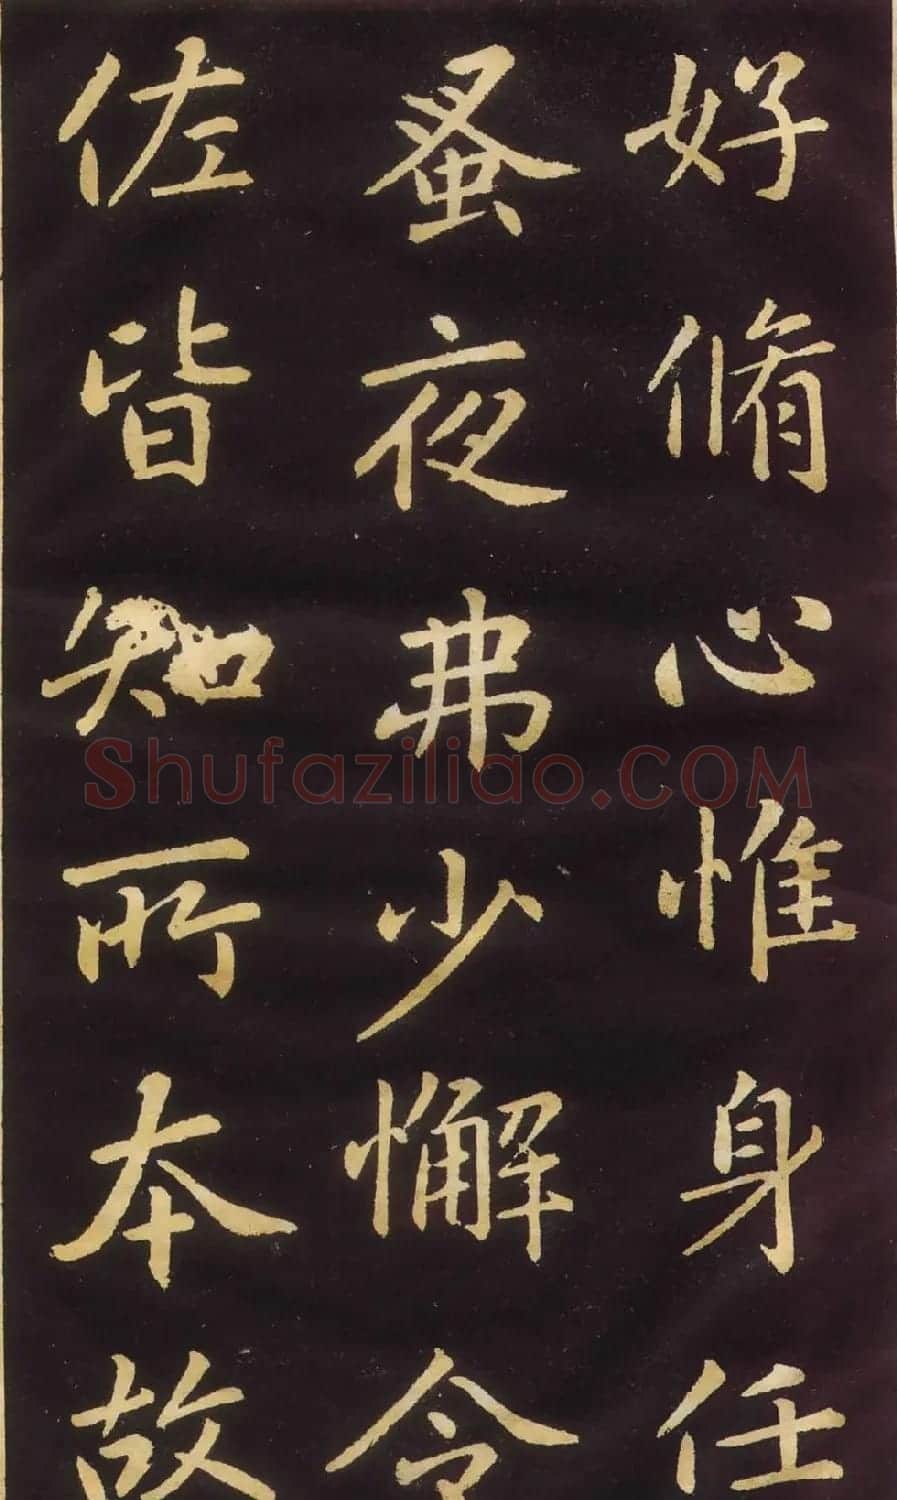 好脩心惟身任
蚤夜弗少懈令
佐皆知所本故
Shufaziliao.COM